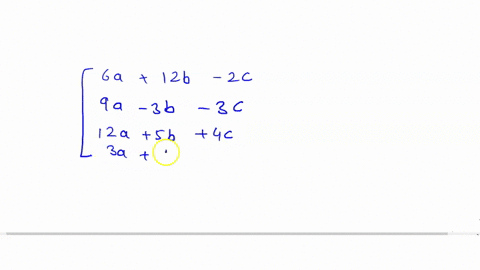 6a + 12b - 2c
9a - 3b - 3c
12a + 5b + 4c
3a +